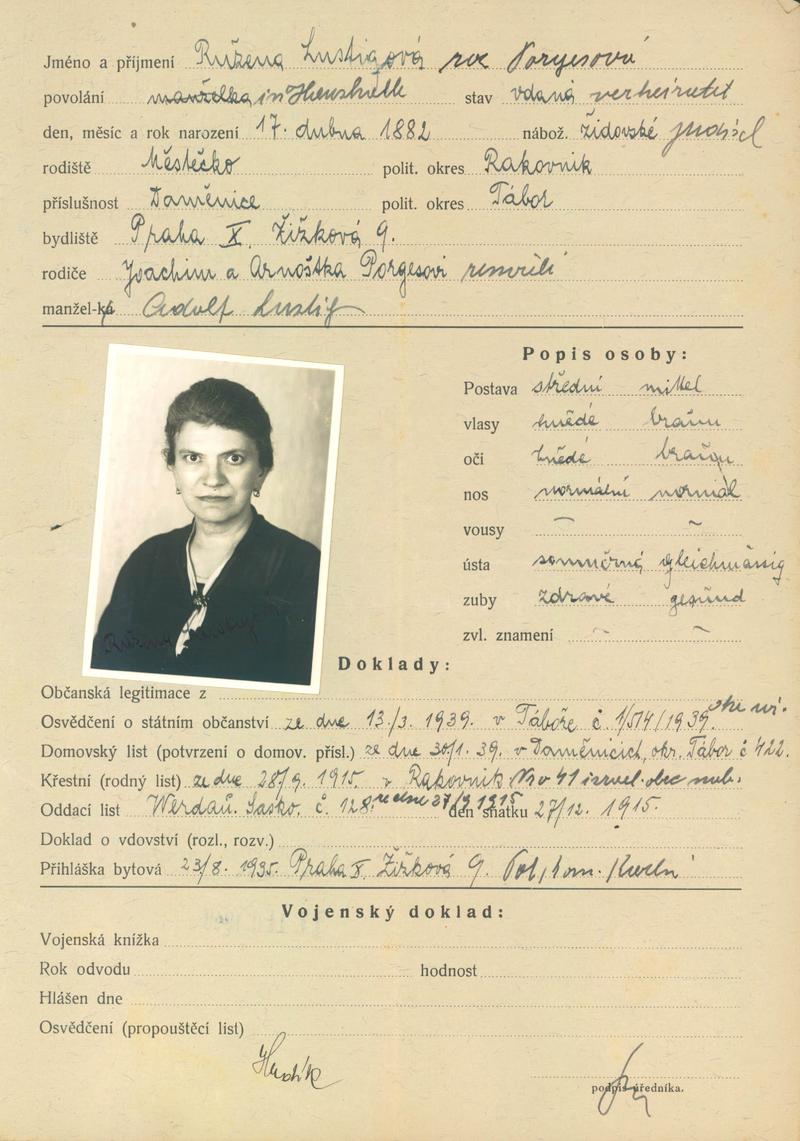 Jméno a příjmení Růžena Lustigová roz Porgesová
povolání manželka in Haushalte stav vdaná verheiratet
den, měsíc a rok narození 17. dubna 1882 nábož. židovské
rodiště Městečko polit. okres Rakovník
příslušnost Daměnice polit. okres Tábor
bydliště Praha X, Žižková 9.
rodiče Joachim a Arnoštka Porgesovi
manžel-ka Adolf Lustig
Popis osoby:
Postava střední mittel
vlasy hnědé braun
oči hnědé braun
nos normální normal
vousy — ~
ústa souměrná gleichmässig
zuby zdravé gesund
zvl. znamení ~ ~
Růžena
Doklady:
Občanská legitimace z
Osvědčení o státním občanství ze dne 13./3. 1939. v Táboře č 1/514/1939
Domovský list (potvrzení o domov. přísl.) ze dne 30/1. 39. v Daměnicích, okr. Tábor č 422.
Křestní (rodný list) ze dne 28/9. 1915. v Rakovník No 41 izrael. obec
Oddací list Werdau. Sasko. č. 128. ze dne 27/12 1915 den sňatku 27/12. 1915.
Doklad o vdovství (rozl., rozv.)
Přihláška bytová 23/8. 1935. Praha X. Žižková 9. Pol. kom.
Vojenský doklad:
Vojenská knížka
Rok odvodu hodnost
Hlášen dne
Osvědčení (propouštěcí list)
podpis úředníka.